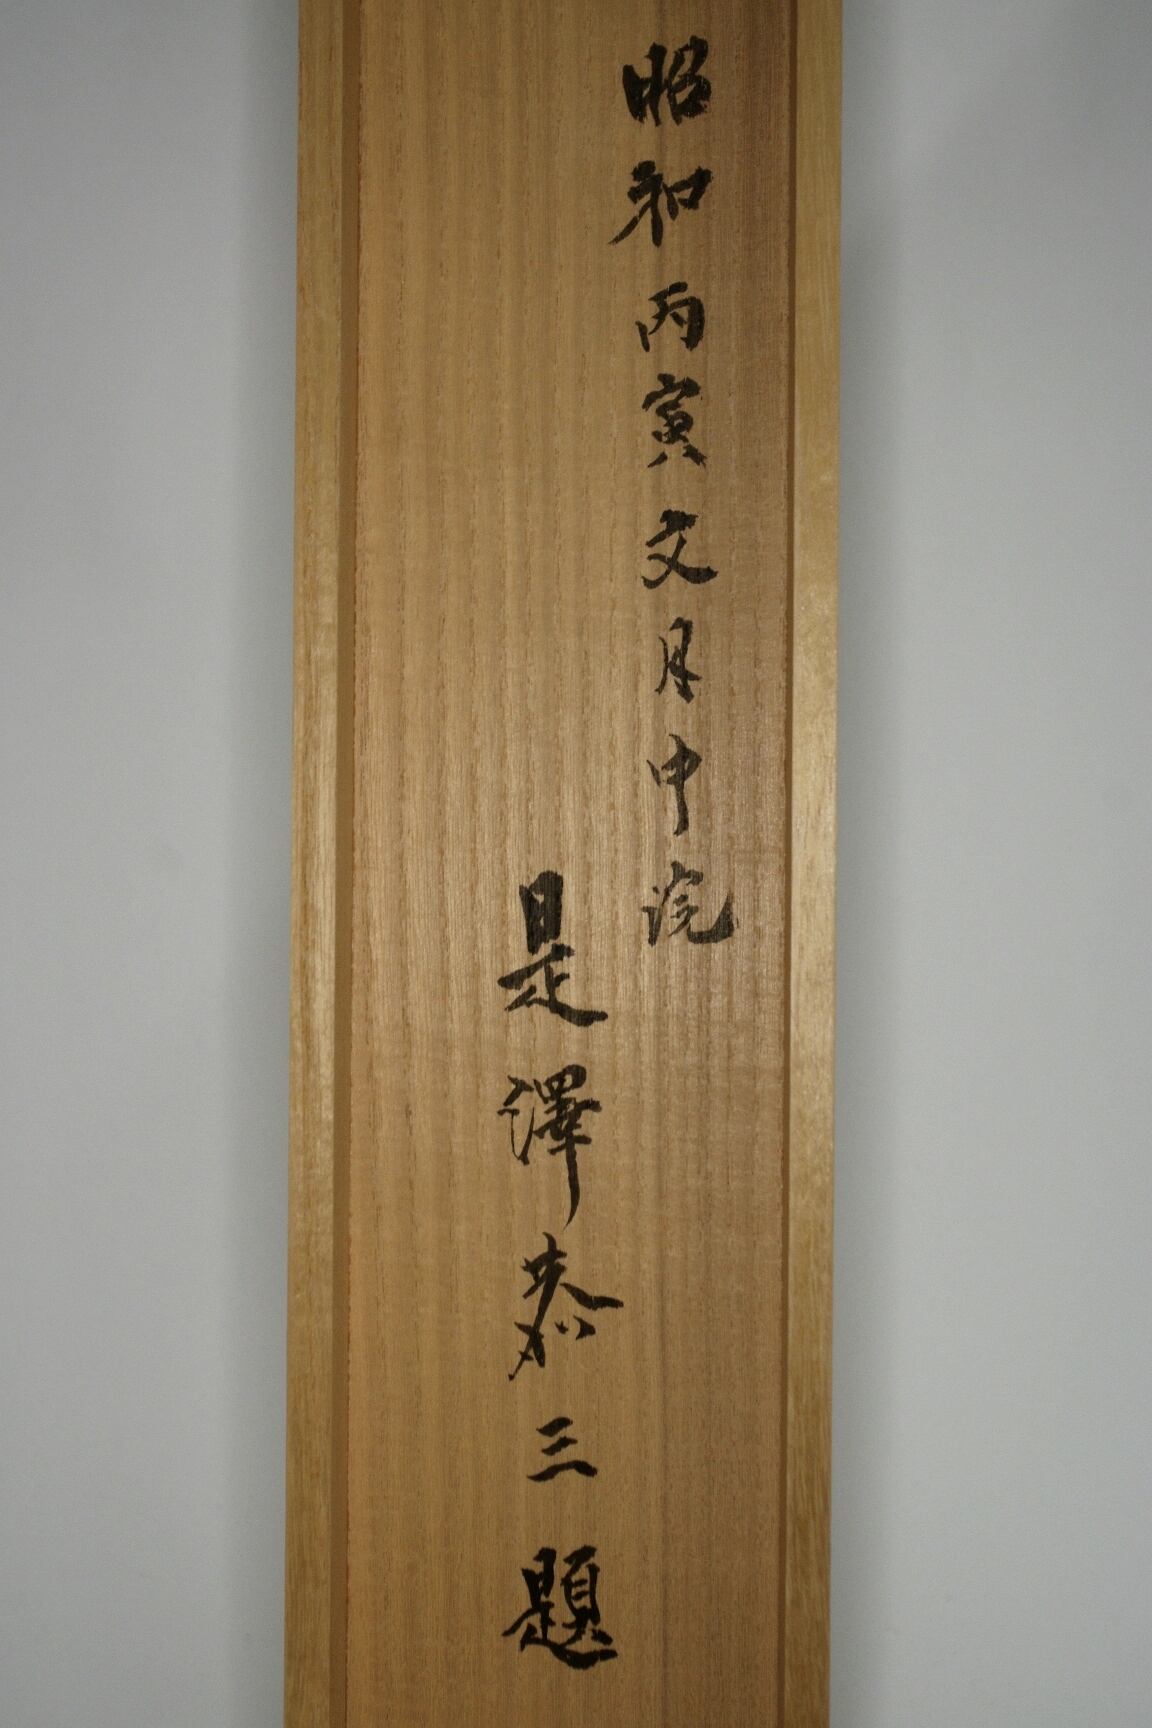 昭和丙寅文月中浣
是澤恭三題